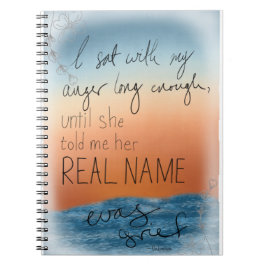 I sat with my
anger long enough,
until she
told me her
REAL NAME
was
grief